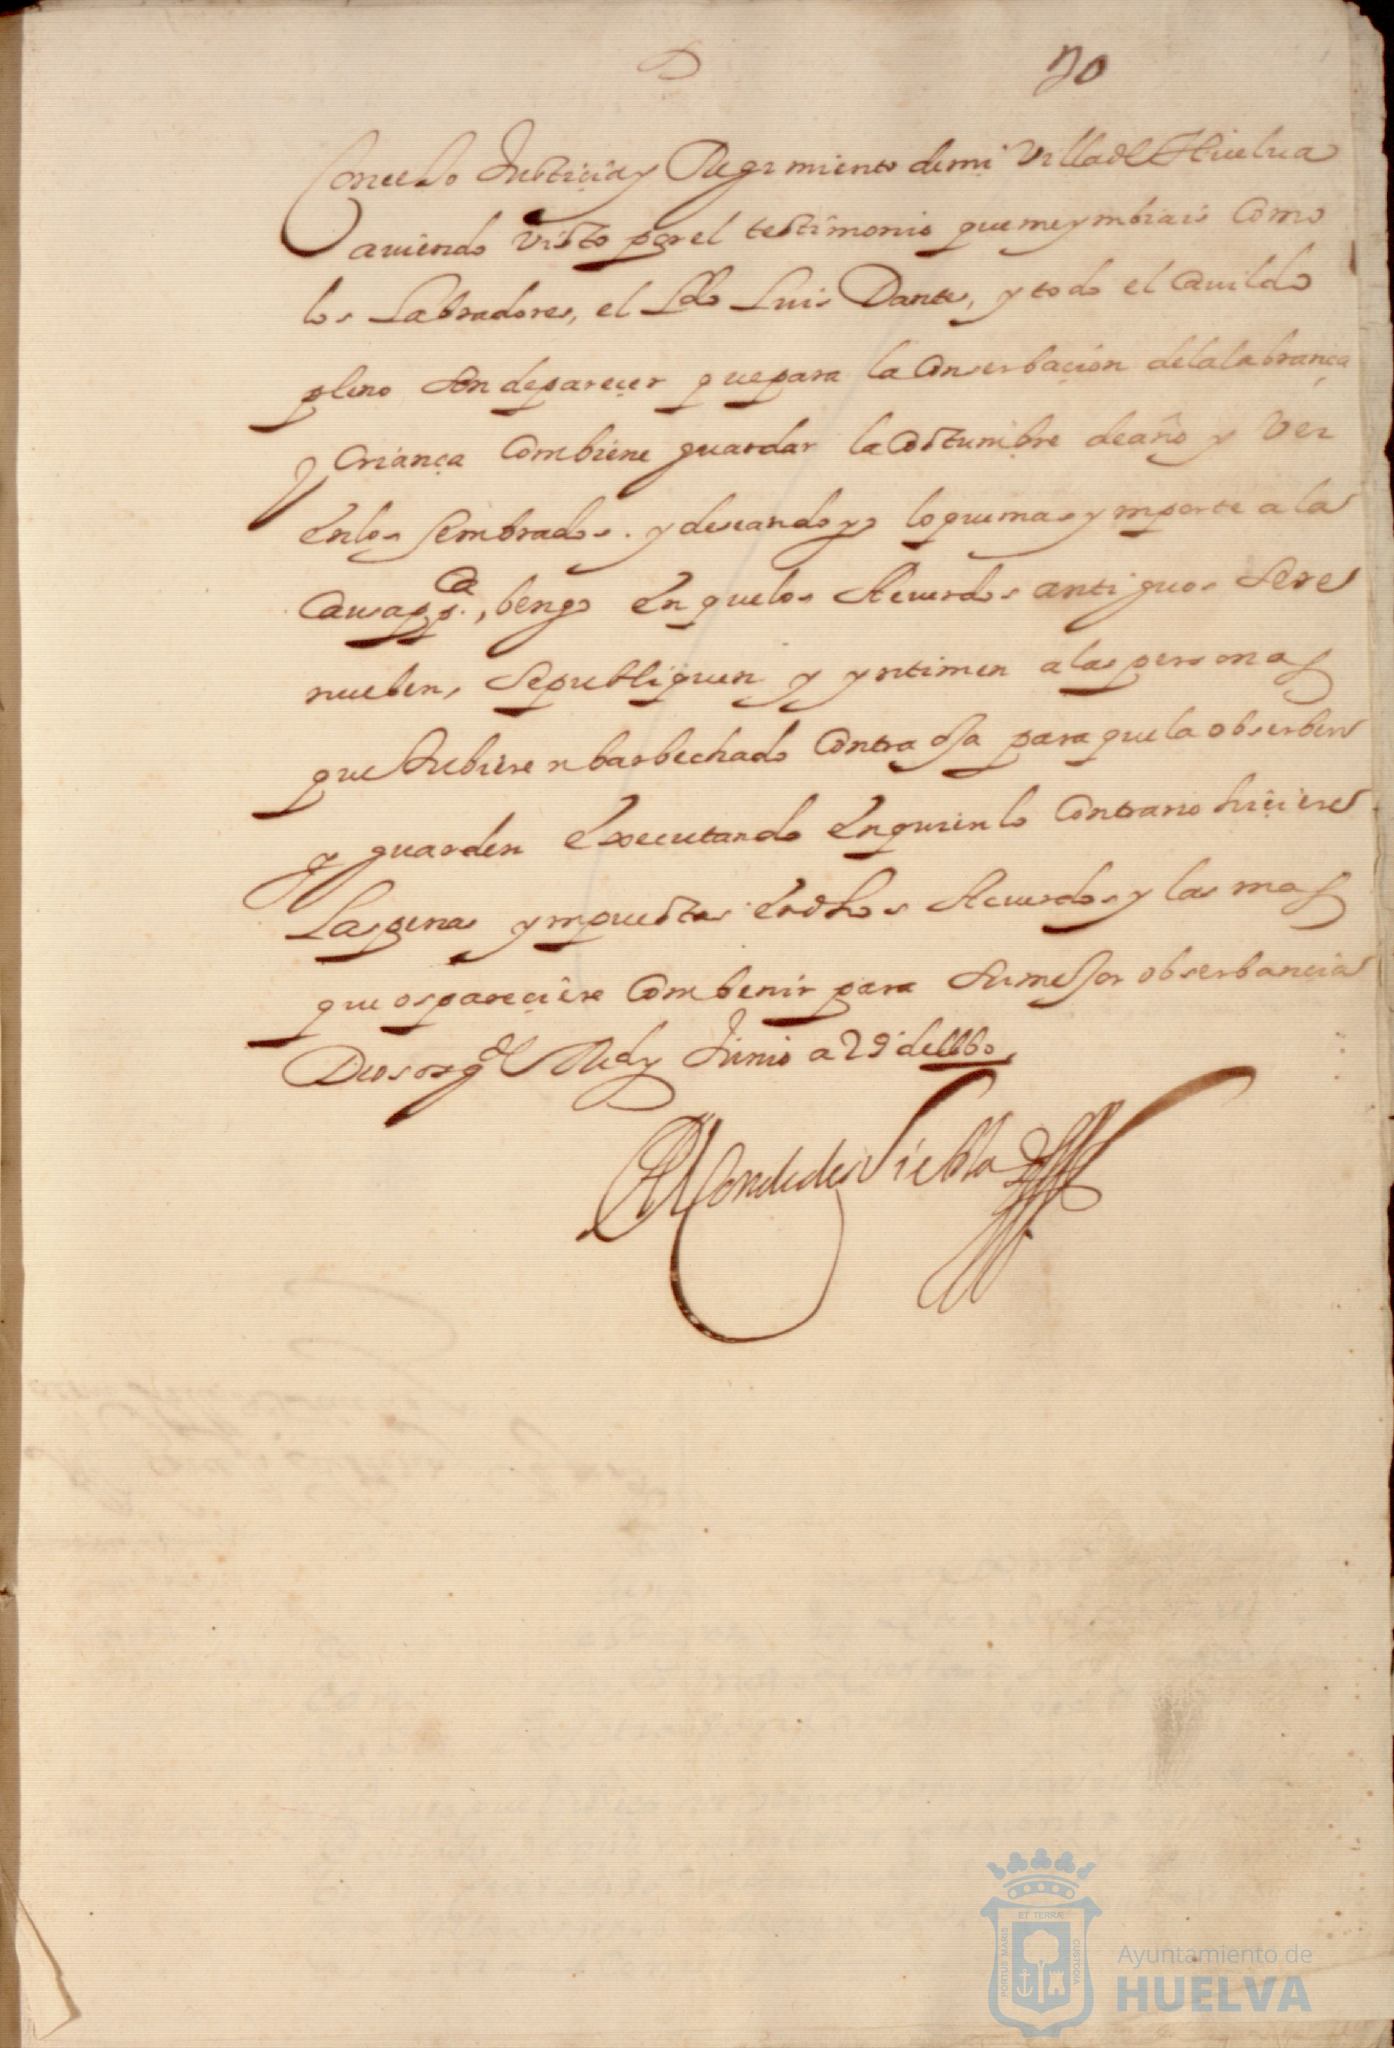 70
Concejo Justicia y Regimiento de mi Villa de Huelua
auiendo visto por el testimonio que me ymbiais Como
los Labradores, el Ldo Luis Dante, y todo el Cauildo
pleno son de pareçer que para la Conserbaçion de la labrança
y Criança Combiene guardar la Costumbre de año y Vez
en los sembrados. y deseando yo lo que mas ymporte a la
Causa ppca, bengo en que los Acuerdos antiguos se re
nueben, se publiquen y yntimen a las personas
que hubieren barbechado Contra ella para que la obserben
y guarden executando en quien lo Contrario hiçiere
Las penas ympuestas en dhos Acuerdos y las mas
que os pareçiere Combenir para su mejor obserbancia
Dios os gde Md y Junio a 29 de
El Conde de Niebla
ET TERRÆ
PORTUS MARIS
CUSTODIA
Ayuntamiento de
HUELVA